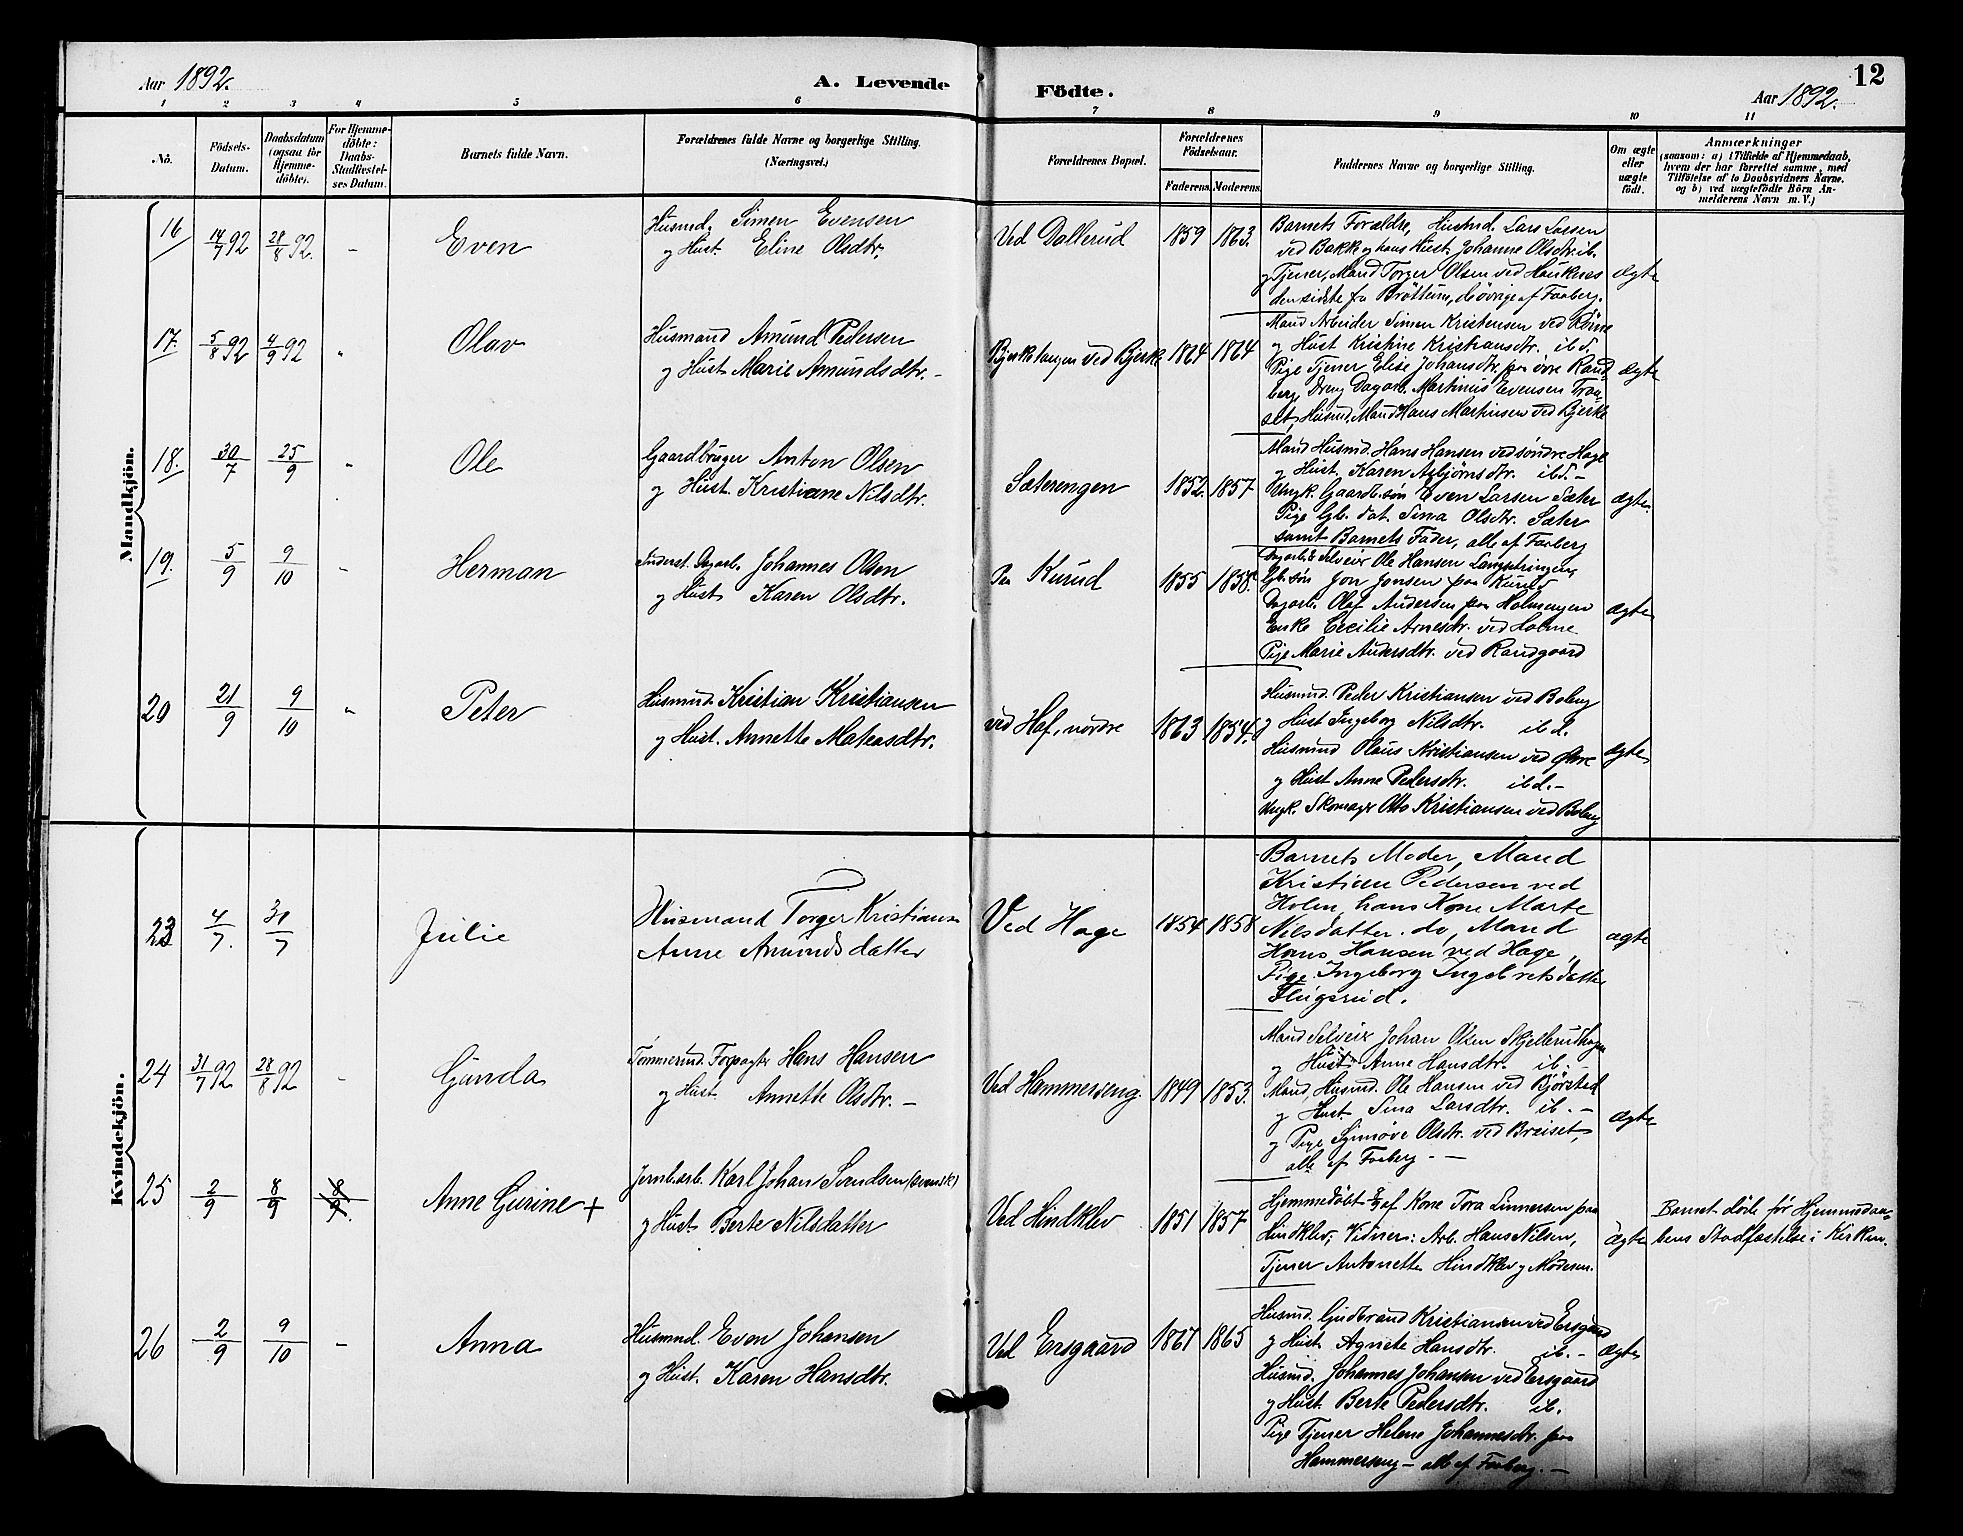 Aar 1892. A. Levende Födte. Aar 1892. 12
1 2 3 4 5 6 7 8 9 10 11
No. Födsels-Datum. Daabsdatum (ogsaa for Hjemmedöbte). For Hjemmedöbte: Daabs-Stadfæstelses Datum. Barnets fulde Navn. Forældrenes fulde Navne og borgerlige Stilling. (Næringsvei.) Forældrenes Bopæl. Forældrenes Födselsaar. Faderens. Moderens. Faddernes Navne og borgerlige Stilling. Om ægte eller uægte födt. Anmærkninger
(saasom: a) i Tilfælde af Hjemmedaab, hvem der har forrettet samme, med Tilföielse af to Daabsvidners Navne, og b) ved uægtefödte Börn Anmelderens Navn m. V.)
Mandkjön.
16 14/7 92 28/8 92. - Even
Husmd. Simen Evensen
og Hust. Eline Olsdtr.
Ved Dallerud 1859 1863.
Barnets Forældre, Husmd. Lars Larsen
ved Bakk og hans Hust. Johanne Olsdtr. ib.
og Tjener, Mand Torger Olsen ved Haukenes
den sidste fra Brøttum, de øvrige af Faaberg.
ægte
17. 5/8 92 4/9 92 " Olav
Husmand Amund Pedersen
og Hust Marie Amundsdtr. -
ved Bjerke 1864 1864
Mand Arbeider Simen Kristensen ved
og Hust Kristine Kristiansdtr. ibd.
Pige Tjener Elise Johansdtr. paa øvre Rand-
berg, Dreng Dagarb. Martinus Evensen
Husmd. Mand Hans Martinsen ved Bjerke
ægte
18. 30/7 25/9 " Ole
Gaardbruger Anton Olsen
og Hust. Kristiane Nilsdtr.
Sæterengen 1852. 1857
Mand Husmd. Hans Hansen ved søndre Hage
og Hust. Karen Asbjørnsdtr. ibd. -
Ungk. Gaardb.søn Even Larsen Sæter
Pige Gb. dat. Sina Olsdtr. Sæter
samt Barnets Fader, alle af Faaberg
ægte.
19. 5/9 9/10 - Herman
Inderst. Dagarb. Johannes Olsen
og Hust. Karen Olsdtr.
Paa Kurud 1855 1858.
Dagarb. & Selveier Ole Hansen
Gb.søn Jon Jonsen paa Kurud
Dagarb. Olaf Andersen paa Holmengen
Enke Cecilie Arnesdtr. ved Holme
Pige Marie Andersdtr. ved Randgaard
ægte
20 21/9 9/10 " Peter
Husmand Kristian Kristiansen
og Hust. Annette Mateasdtr.
ved Hof, nordre 1863 1854.
Husmand. Peder Kristiansen ved Boberg
og Hust Ingeborg Nilsdtr. ibd.
Husmand Olaus Kristiansen ved
og Hust Anne Pedersdtr. ibd. -
Ungk. Skomager Otto Kristiansen ved Boberg
ægte
Kvindekjön.
23 4/7. 31/7 Julie
Husmand Torger Kristiansen
Anne Amundsdatter
Ved Hage 1854 1858
Barnets Moder, Mand
Kristian Pedersen ved
Holen, hans Kone Marte
Nilsdatter. do, Mand
Hans Hansen ved Hage,
Pige Ingeborg Ingebretsdatter
Flugsrud.
ægte
24 31/7 92 28/8 92 - Gunda
Tømmermd. Forpagter Hans Hansen
og Hust. Annette Olsdtr. -
Ved Hammerseng. 1849 1853.
Mand Selveier Johan Olsen Skjellerudhagen
og Hust. Anne Hansdtr. ib. -
Mand, Husmd. Ole Hansen ved Bjørstad
og Hust. Sina Larsdtr. ib. -
og Pige Synnøve Olsdtr. ved Breiset,
alle af Faaberg - -
ægte
25 2/9 8/9 8/9. Anne Gurine +
Jernb.arb. Karl Johan Svendsen (svensk)
og Hust. Berte Nilsdatter
Ved Hindklev 1851 1857
Hjemmedøbt 8/9 af Kone Tora Linnersen paa
Hindklev; Vidner: Arb. Hans Nilsen,
Tjener Antonette Hindklev og Moderen.
ægte
Barnet døde før Hjemmedaa-
bens Stadfæstelse i Kirken.
26 2/9 9/10 - Anna
Husmd. Even Johansen
og Hust. Karen Hansdtr.
Ved Ensgaard 1867 1865
Husmd. Gudbrand Kristiansen ved Ensgaard
og Hust. Agnete Hansdtr. ib. -
Husmd. Johannes Johansen ved Ensgaard
og Hust Berte Pedersdtr. ib.
Pige Tjener Helene Johannesdtr. paa
Hammerseng - alle af Faaberg. -
ægte